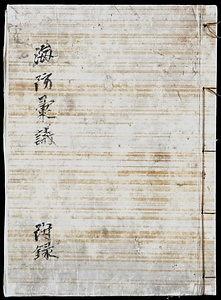 海防彙議
附録